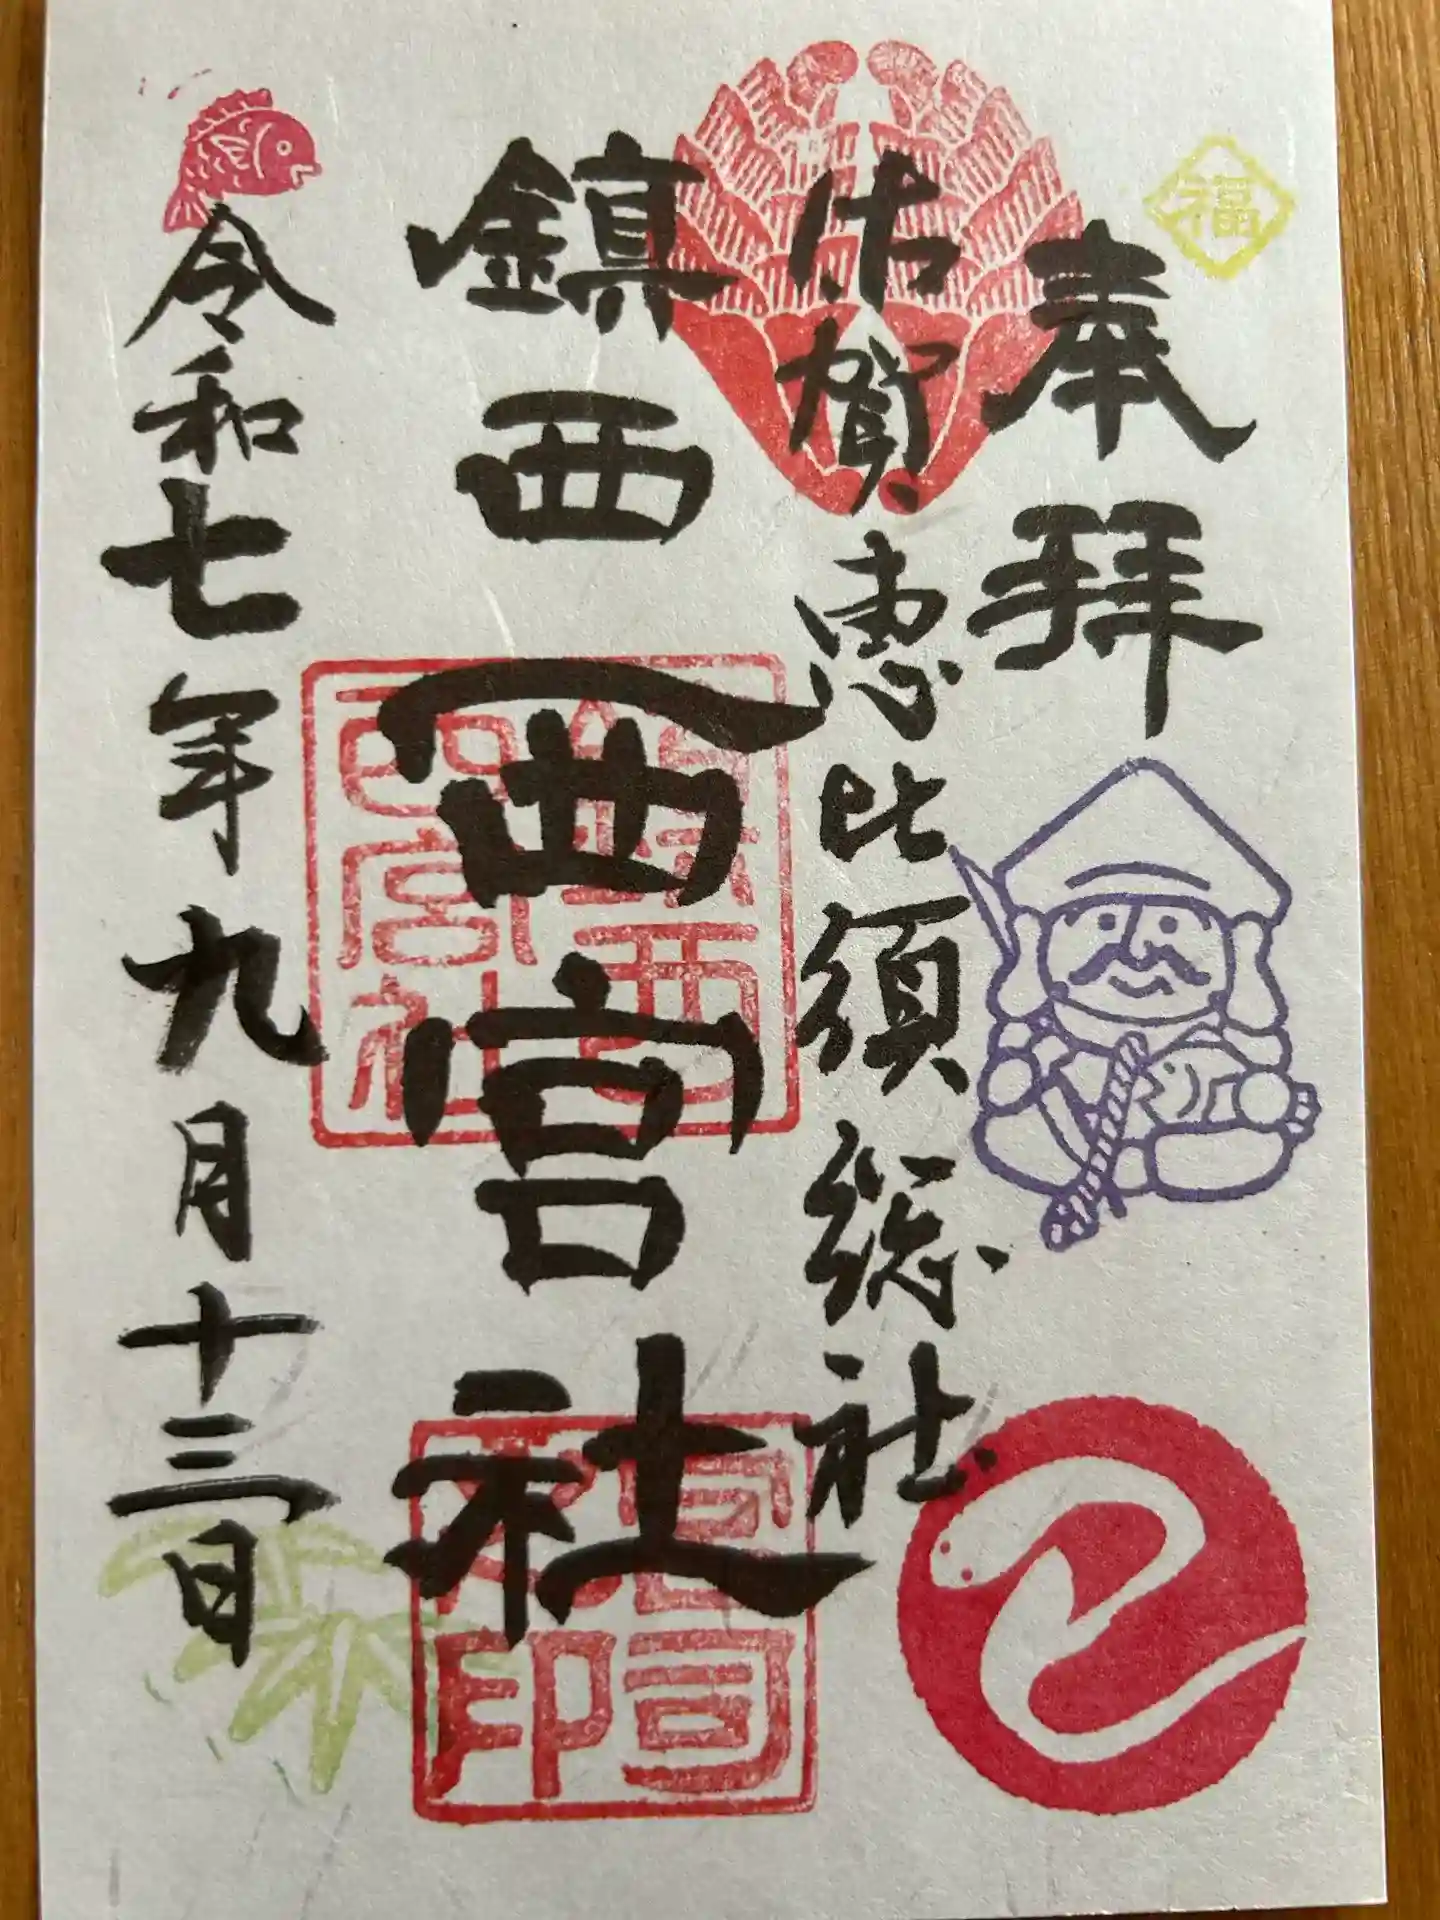 福
奉拝
佐賀恵比須総社
鎮西西宮社
鎮西
西宮社
宮司
之印
令和七年九月十三日